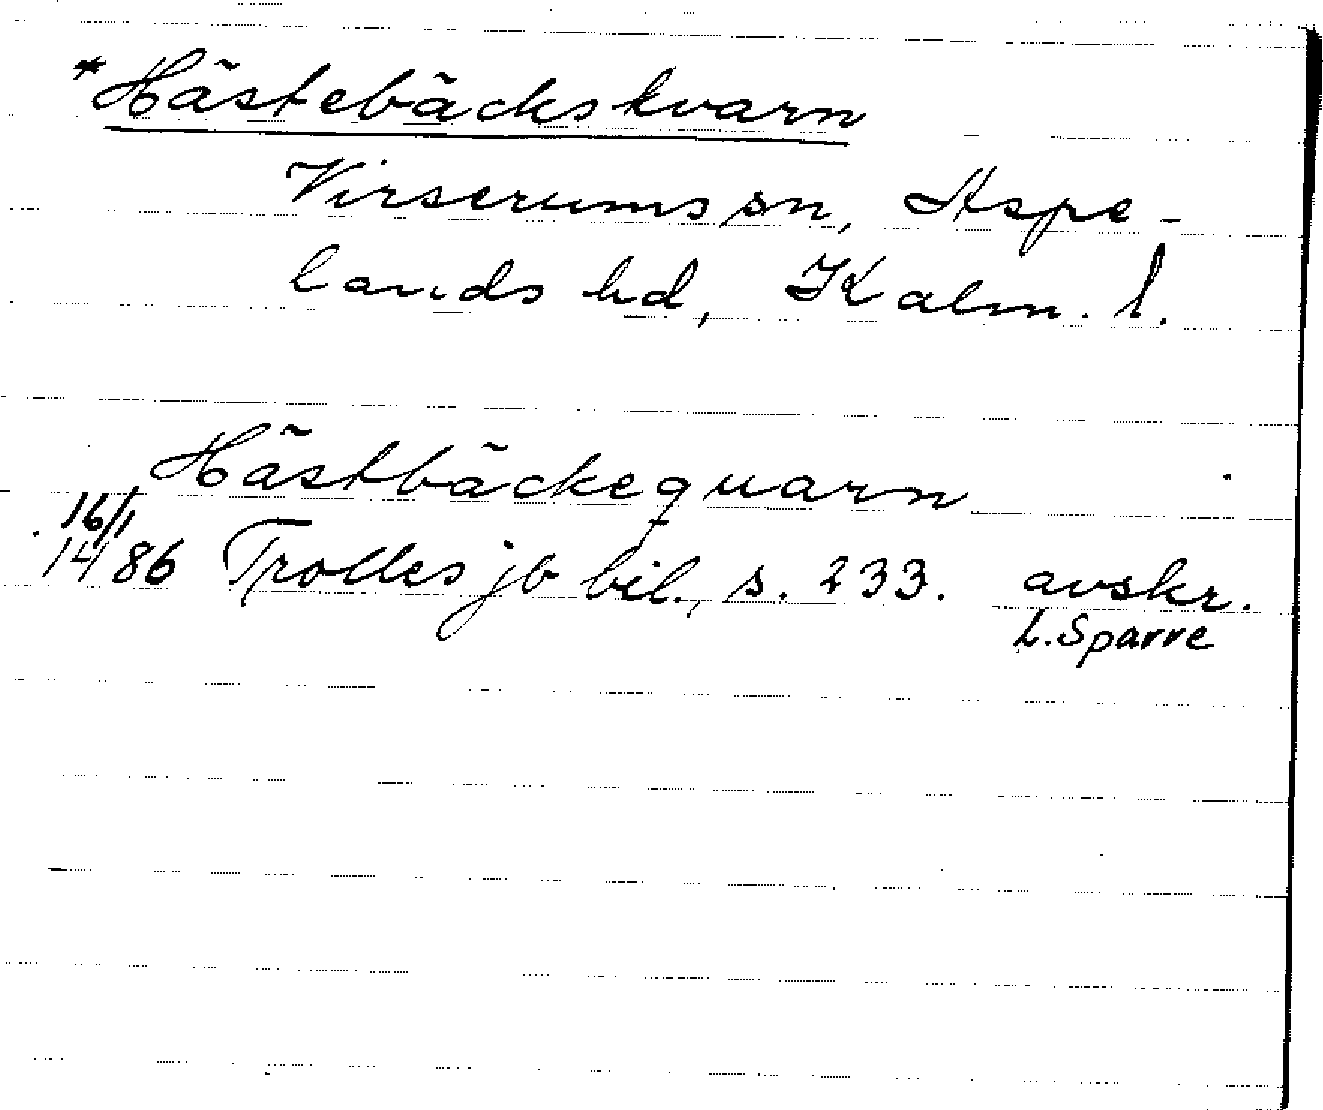 *Hästebäckskvarn
Virserums sn, Aspe-
lands hd, Kalm. l.
Hästbäckequarn
16/1
14/86 Trolles jb bil., s. 233. avskr.
L. Sparre